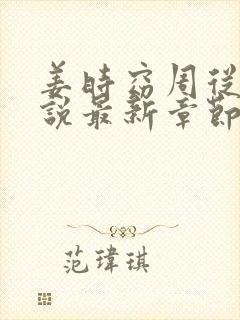 姜時窈周從
說最新章節
范瑋琪